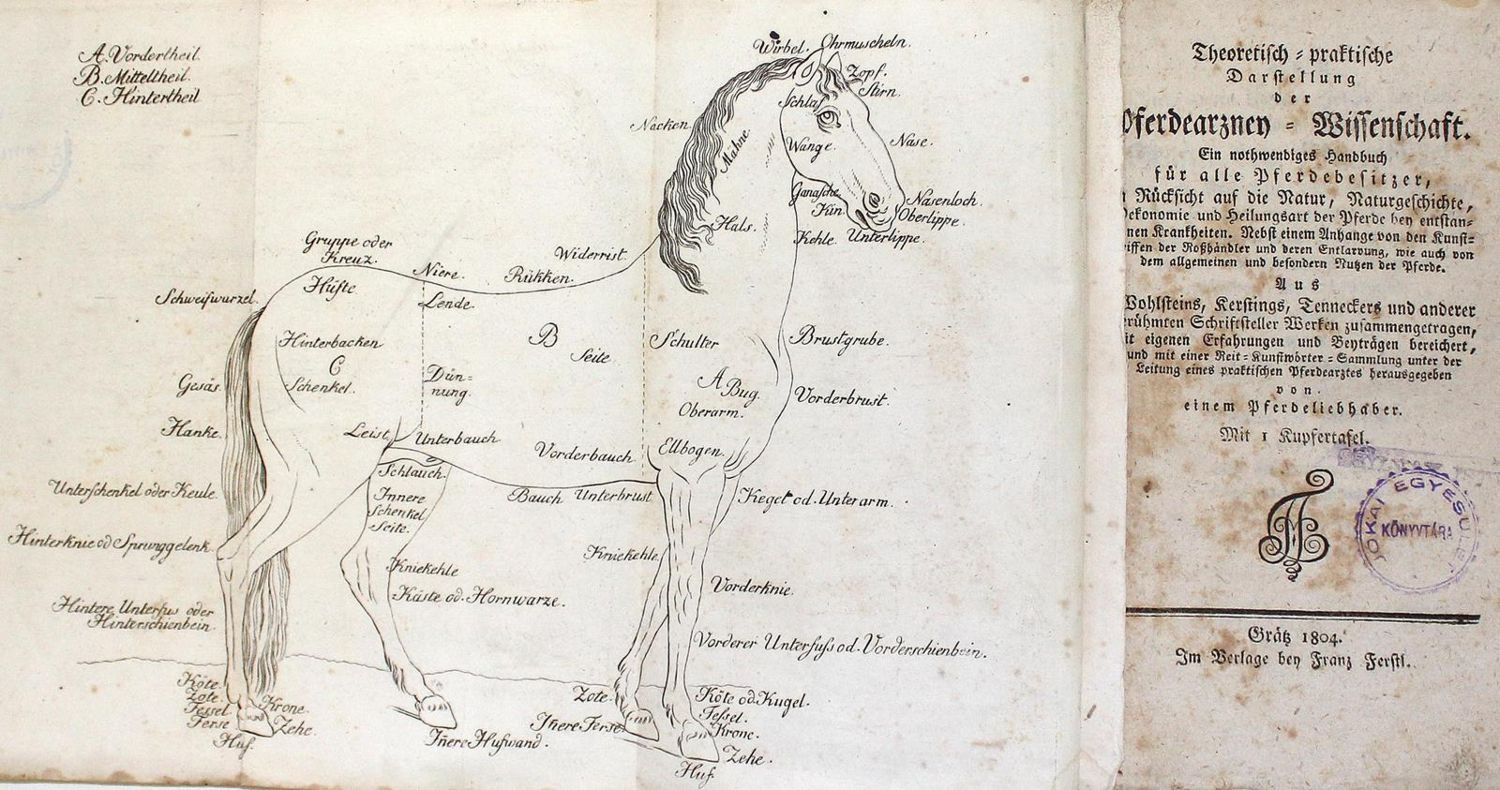 A. Vordertheil.
B. Mitteltheil.
C. Hintertheil
Wirbel. Ohrmuscheln.
Zopf.
Stirn.
Schlaf
Nacken
Mähne
Wange.
Nase.
Ganasche
Kin
Nasenloch.
Oberlippe.
Hals.
Kehle Unterlippe.
Gruppe oder
Kreuz.
Widerrist
Niere.
Rükken.
Hüfte
Schweifwurzel.
Lende.
B
Seite.
Schulter
Brustgrube.
Hinterbacken
C
Schenkel.
Gesäs.
Dün=
nung.
A Bug.
Oberarm.
Vorderbrust.
Hanke.
Leist.
Unterbauch
Vorderbauch
Ellbogen.
Schlauch.
Unterschenkel oder Keule.
Innere
Schenkel
Seite.
Bauch Unterbrust
Kegel od. Unterarm.
Hinterknie od Sprunggelenk.
Kniekehle
Kniekehle
Käste od. Hornwarze.
Vorderknie.
Hintere Unterfus oder
Hinterschienbein.
Vorderer Unterfuss od. Vorderschienbein.
Köte.
Zote.
Fessel
Ferse
Krone.
Zehe.
Huf.
Iñere Hufwand.
Zote.
Iñere Ferse
Köte od. Kugel.
Fessel.
Krone.
Zehe.
Huf.
Theoretisch = praktische
Darstellung
der
Pferdearzney = Wissenschaft.
Ein nothwendiges Handbuch
für alle Pferdebesitzer,
Rücksicht auf die Natur, Naturgeschichte,
Oekonomie und Heilungsart der Pferde bey entstan=
nen Krankheiten. Nebst einem Anhange von den Kunst=
iffen der Roßhändler und deren Entlarvung, wie auch von
dem allgemeinen und besondern Nutzen der Pferde.
Aus
Wohlsteins, Kerstings, Tenneckers und anderer
erühmten Schriftsteller Werken zusammengetragen,
it eigenen Erfahrungen und Beyträgen bereichert,
und mit einer Reit=Kunstwörter=Sammlung unter der
Leitung eines praktischen Pferdearztes herausgegeben
von
einem Pferdeliebhaber.
Mit 1 Kupfertafel.
JÓKAI EGYESÜLET
KÖNYVTÁRA
Grätz 1804.
Im Verlage bey Franz Ferstl.